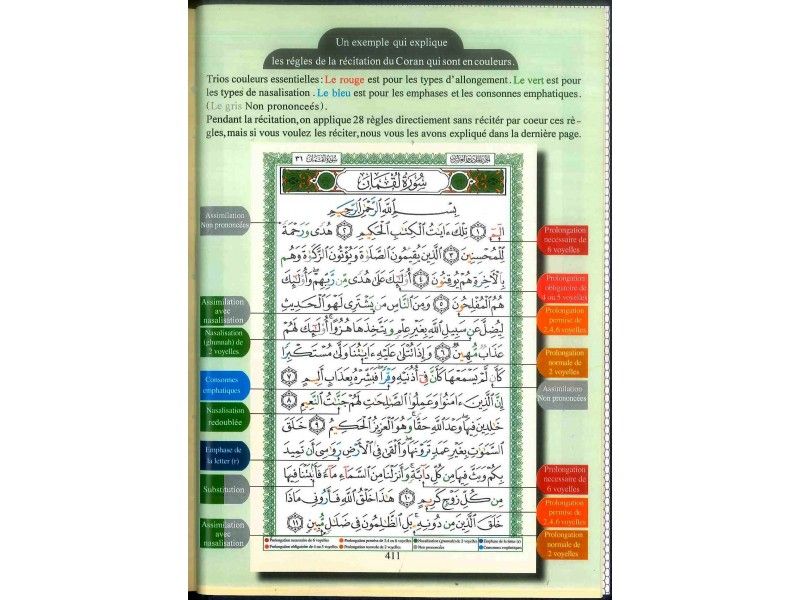 Un exemple qui explique
les régles de la récitation du Coran qui sont en couleurs.
Trios couleurs essentielles: Le rouge est pour les types d'allongement. Le vert est pour
les types de nasalisation. Le bleu est pour les emphases et les consonnes emphatiques.
(Le gris Non prononceés).
Pendant la récitation, on applique 28 règles directement sans récitér par coeur ces rè-
gles, mais si vous voulez les réciter, nous vous les avons expliqué dans la dernière page.
سُورَةُ لُقْمَان ٣١
سُورَةُ لُقْمَان
بِسْمِ اللَّهِ الرَّحْمَٰنِ الرَّحِيمِ
الٓمٓ ١ تِلْكَ ءَايَٰتُ الْكِتَٰبِ الْحَكِيمِ ٢ هُدًى وَرَحْمَةً
لِّلْمُحْسِنِينَ ٣ الَّذِينَ يُقِيمُونَ الصَّلَوٰةَ وَيُؤْتُونَ الزَّكَوٰةَ وَهُم
بِالْءَاخِرَةِ هُمْ يُوقِنُونَ ٤ أُوْلَٰٓئِكَ عَلَىٰ هُدًى مِّن رَّبِّهِمْ وَأُوْلَٰٓئِكَ
هُمُ الْمُفْلِحُونَ ٥ وَمِنَ النَّاسِ مَن يَشْتَرِي لَهْوَ الْحَدِيثِ
لِيُضِلَّ عَن سَبِيلِ اللَّهِ بِغَيْرِ عِلْمٍ وَيَتَّخِذَهَا هُزُوًا أُوْلَٰٓئِكَ لَهُمْ
عَذَابٌ مُّهِينٌ ٦ وَإِذَا تُتْلَىٰ عَلَيْهِ ءَايَٰتُنَا وَلَّىٰ مُسْتَكْبِرًا
كَأَن لَّمْ يَسْمَعْهَا كَأَنَّ فِيٓ أُذُنَيْهِ وَقْرًا فَبَشِّرْهُ بِعَذَابٍ أَلِيمٍ ٧
إِنَّ الَّذِينَ ءَامَنُوا وَعَمِلُوا الصَّٰلِحَٰتِ لَهُمْ جَنَّٰتُ النَّعِيمِ ٨
خَٰلِدِينَ فِيهَا وَعْدَ اللَّهِ حَقًّا وَهُوَ الْعَزِيزُ الْحَكِيمُ ٩ خَلَقَ
السَّمَٰوَٰتِ بِغَيْرِ عَمَدٍ تَرَوْنَهَا وَأَلْقَىٰ فِي الْأَرْضِ رَوَٰسِيَ أَن تَمِيدَ
بِكُمْ وَبَثَّ فِيهَا مِن كُلِّ دَآبَّةٍ وَأَنزَلْنَا مِنَ السَّمَآءِ مَآءً فَأَنۢبَتْنَا فِيهَا
مِن كُلِّ زَوْجٍ كَرِيمٍ ١٠ هَٰذَا خَلْقُ اللَّهِ فَأَرُونِي مَاذَا
خَلَقَ الَّذِينَ مِن دُونِهِ بَلِ الظَّٰلِمُونَ فِي ضَلَٰلٍ مُّبِينٍ ١١
Assimilation
Non prononcées
Assimilation
avec
nasalisation
Nasalisation
(ghunnah) de
2 voyelles
Consonnes
emphatiques
Nasalisation
redoublée
Emphase de
la letter (r)
Substitution
Assimilation
avec
nasalisation
Prolongation
necessaire de
6 voyelles
Prolongation
obligatoire de
4 ou 5 voyelles
Prolongation
permise de
2,4,6 voyelles
Prolongation
normale de
2 voyelles
Assimilation
Non prononcées
Prolongation
necessaire de
6 voyelles
Prolongation
permise de
2,4,6 voyelles
Prolongation
normale de
2 voyelles
Prolongation necessaire de 6 voyelles Prolongation permise de 2,4 ou 6 voyelles Nasalisation (ghunnah) de 2 voyelles Emphase de la lettre (r)
Prolongation obligatoire de 4 ou 5 voyelles Prolongation normale de 2 voyelles Non prononcées Consonnes emphatiques
411